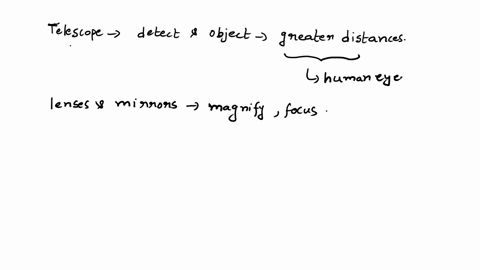 Telescope → detect & object → greater distances.
↳ human eye
lenses & mirrors → magnify, focus.